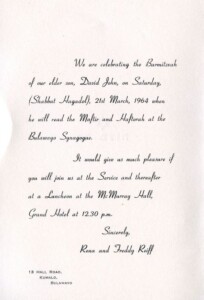 We are celebrating the Barmitzvah
of our elder son, David John, on Saturday,
(Shabbat Hagadol), 21st March, 1964 when
he will read the Maftir and Haftorah at the
Bulawayo Synagogue.
It would give us much pleasure if
you will join us at the Service and thereafter
at a Luncheon at the McMurray Hall,
Grand Hotel at 12.30 p.m.
Sincerely,
Rona and Freddy Reiff
18 HALL ROAD,
KUMALO,
BULAWAYO